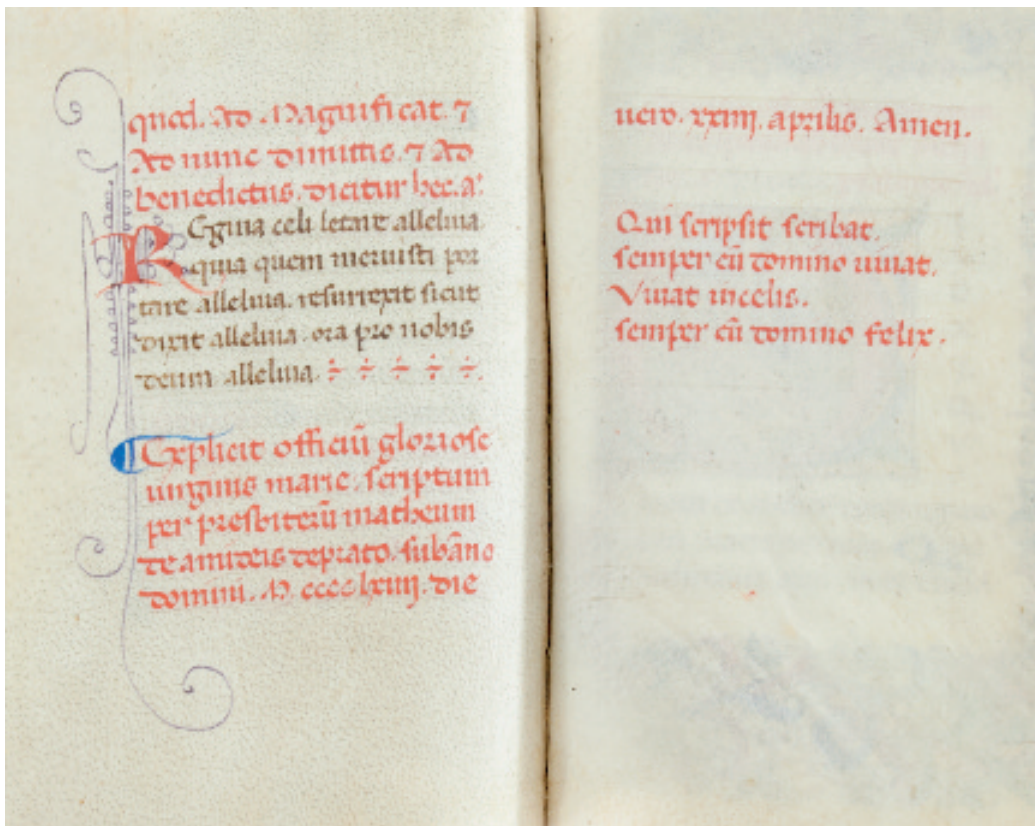 quod. Ad. Magnificat. ⁊
Ad nunc dimittis. ⁊ Ad
benedictus. dicitur hec. aͣ.
REgina celi letare alleluia.
quia quem meruisti por
tare alleluia. resurrexit sicut
dixit alleluia. ora pro nobis
deum alleluia. ÷ ÷ ÷ ÷ ÷.
Explicit officiū gloriose
uirginis marie. scriptum
per presbiterū matheum
de amideis deprato. subāno
domini. M cccc lxiiij. die
uero. xxiiij. aprilis. Amen.
Qui scripsit scribat.
semper cū domino uiuat.
Viuat incelis.
semper cū domino felix.